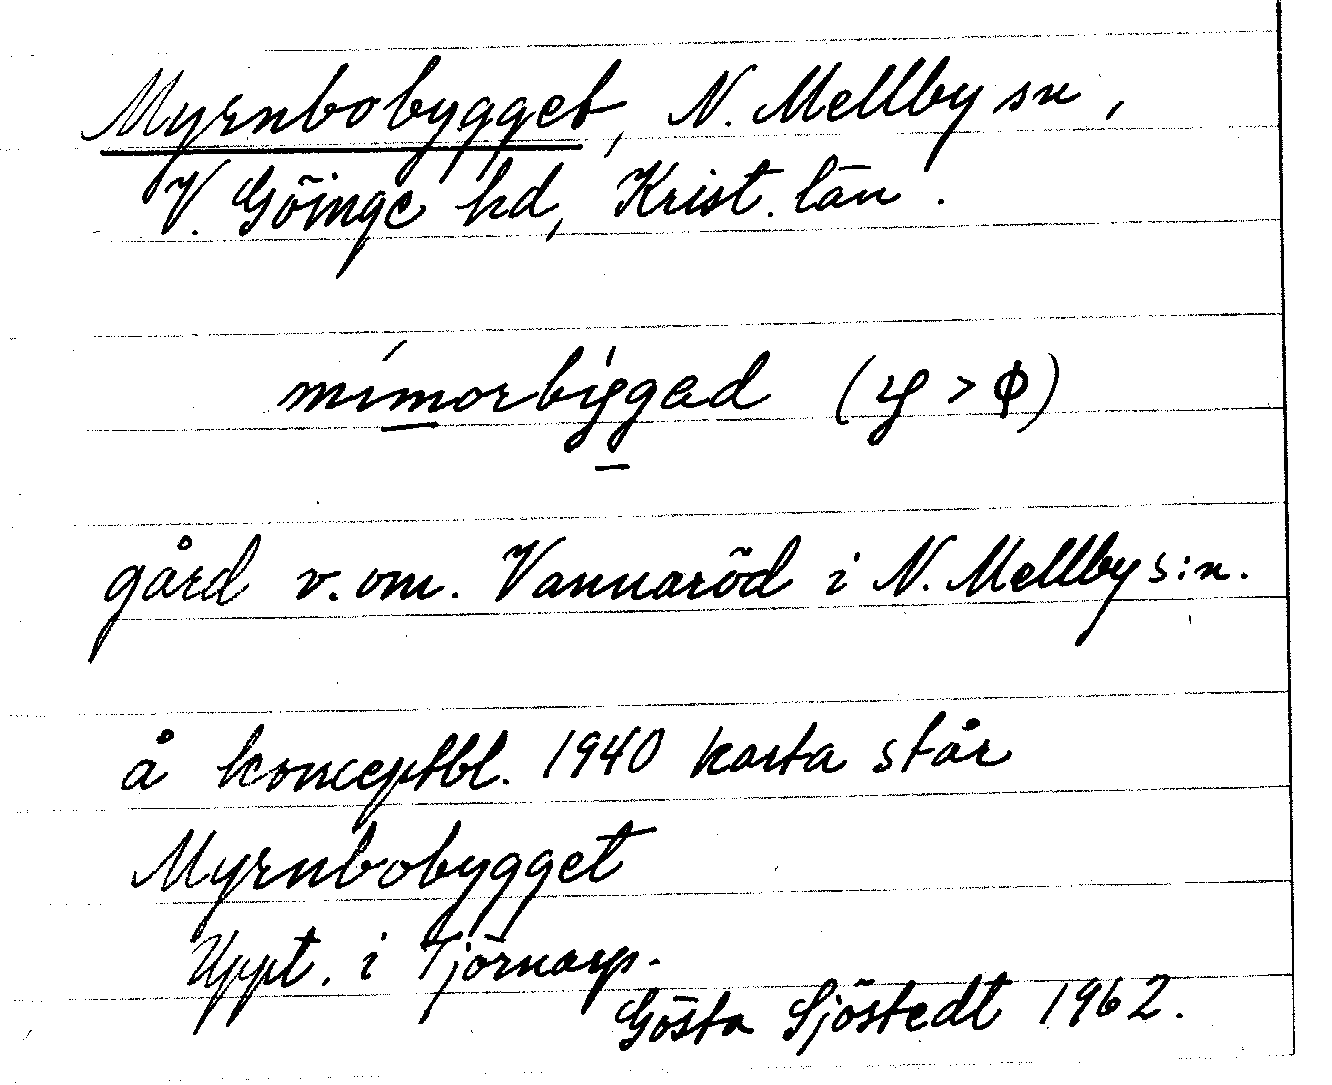 Myrnbobygget, N. Mellby sn,
V. Göinge hd, Krist. län.
(y > ϕ)
gård v. om. Vannaröd i N. Mellby s:n.
å konceptbl. 1940 karta står
Myrnbobygget
Uppt. i Tjörnarp.
Gösta Sjöstedt 1962.